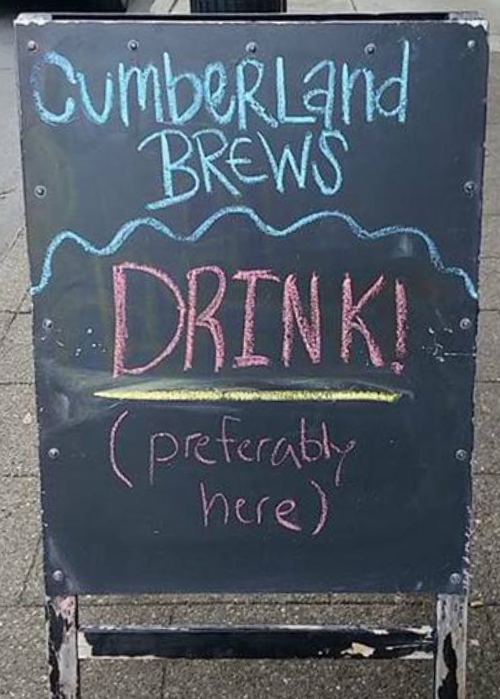 CumbeRLand
BREWS
DRINK!
(preferably
here)